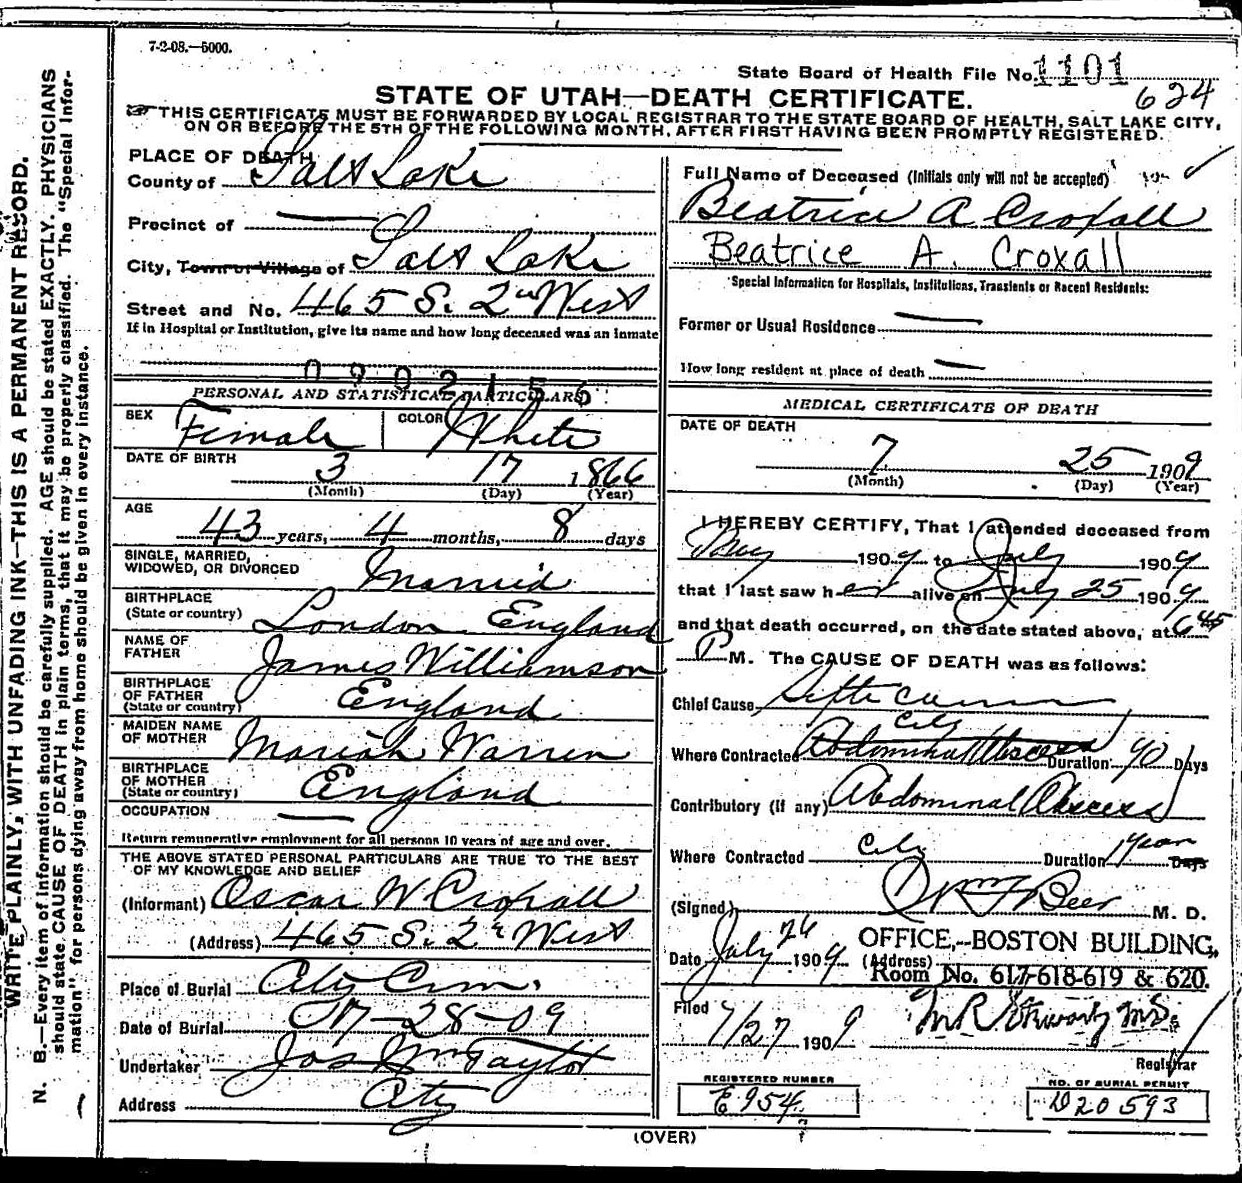 7-2-08.—5000.
State Board of Health File No. 1101
624
STATE OF UTAH—DEATH CERTIFICATE.
THIS CERTIFICATE MUST BE FORWARDED BY LOCAL REGISTRAR TO THE STATE BOARD OF HEALTH, SALT LAKE CITY,
ON OR BEFORE THE 5TH OF THE FOLLOWING MONTH, AFTER FIRST HAVING BEEN PROMPTLY REGISTERED.
WRITE PLAINLY, WITH UNFADING INK—THIS IS A PERMANENT RECORD.
N. B.—Every item of information should be carefully supplied. AGE should be stated EXACTLY. PHYSICIANS
should state CAUSE OF DEATH in plain terms, that it may be properly classified. The "Special Infor-
mation" for persons dying away from home should be given in every instance.
PLACE OF DEATH
County of Salt Lake
Precinct of —
City, Town or Village of Salt Lake
Street and No. 465 S. 2nd West
If in Hospital or Institution, give its name and how long deceased was an inmate
PERSONAL AND STATISTICAL PARTICULARS
SEX Female COLOR White
DATE OF BIRTH
3 17 1866
(Month) (Day) (Year)
AGE
43 years, 4 months, 8 days
SINGLE, MARRIED,
WIDOWED, OR DIVORCED Married
BIRTHPLACE
(State or country) London England
NAME OF
FATHER James Williamson
BIRTHPLACE
OF FATHER
(State or country) England
MAIDEN NAME
OF MOTHER Mariah Warren
BIRTHPLACE
OF MOTHER
(State or country) England
OCCUPATION —
Return remunerative employment for all persons 10 years of age and over.
THE ABOVE STATED PERSONAL PARTICULARS ARE TRUE TO THE BEST
OF MY KNOWLEDGE AND BELIEF
(Informant) Oscar W Croxall
(Address) 465 S. 2nd West
Place of Burial City Cem.
Date of Burial 7-28-09
Undertaker Jos Wm Taylor
Address City
Full Name of Deceased (Initials only will not be accepted)
Beatrice A Croxall
Beatrice A. Croxall
Special Information for Hospitals, Institutions, Transients or Recent Residents:
Former or Usual Residence —
How long resident at place of death —
MEDICAL CERTIFICATE OF DEATH
DATE OF DEATH
7 25 1909
(Month) (Day) (Year)
I HEREBY CERTIFY, That I attended deceased from
1909 to July 1909
that I last saw her alive on July 25 1909
and that death occurred, on the date stated above, at 6 45
P M. The CAUSE OF DEATH was as follows:
Chief Cause
City
Where Contracted Abdominal Abscess Duration 90 Days
Contributory (If any) Abdominal Abscess
Where Contracted City Duration 1 year Days
(Signed) Beer M. D.
Date July 26 1909 (Address)
OFFICE,--BOSTON BUILDING,
Room No. 617-618-619 & 620.
Filed 7/27 1909
Registrar
REGISTERED NUMBER
E 954
NO. OF BURIAL PERMIT
D20593
(OVER)